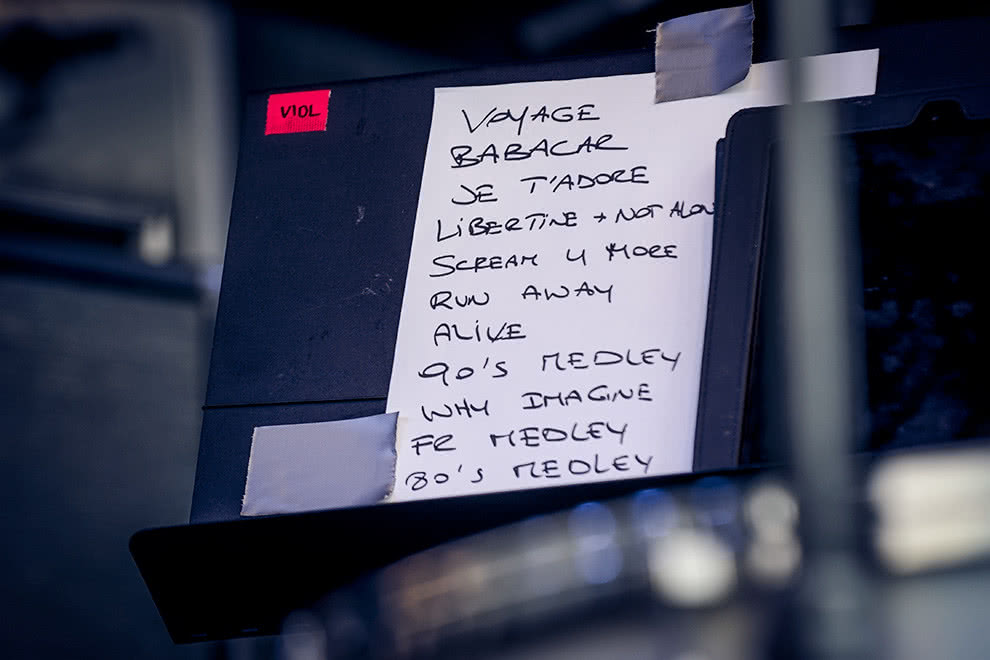 VIOL
VOYAGE
BABACAR
JE T'ADORE
LIBERTINE + NOT ALON
SCREAM 4 MORE
RUN AWAY
ALIVE
90'S MEDLEY
WHY IMAGINE
FR MEDLEY
80'S MEDLEY